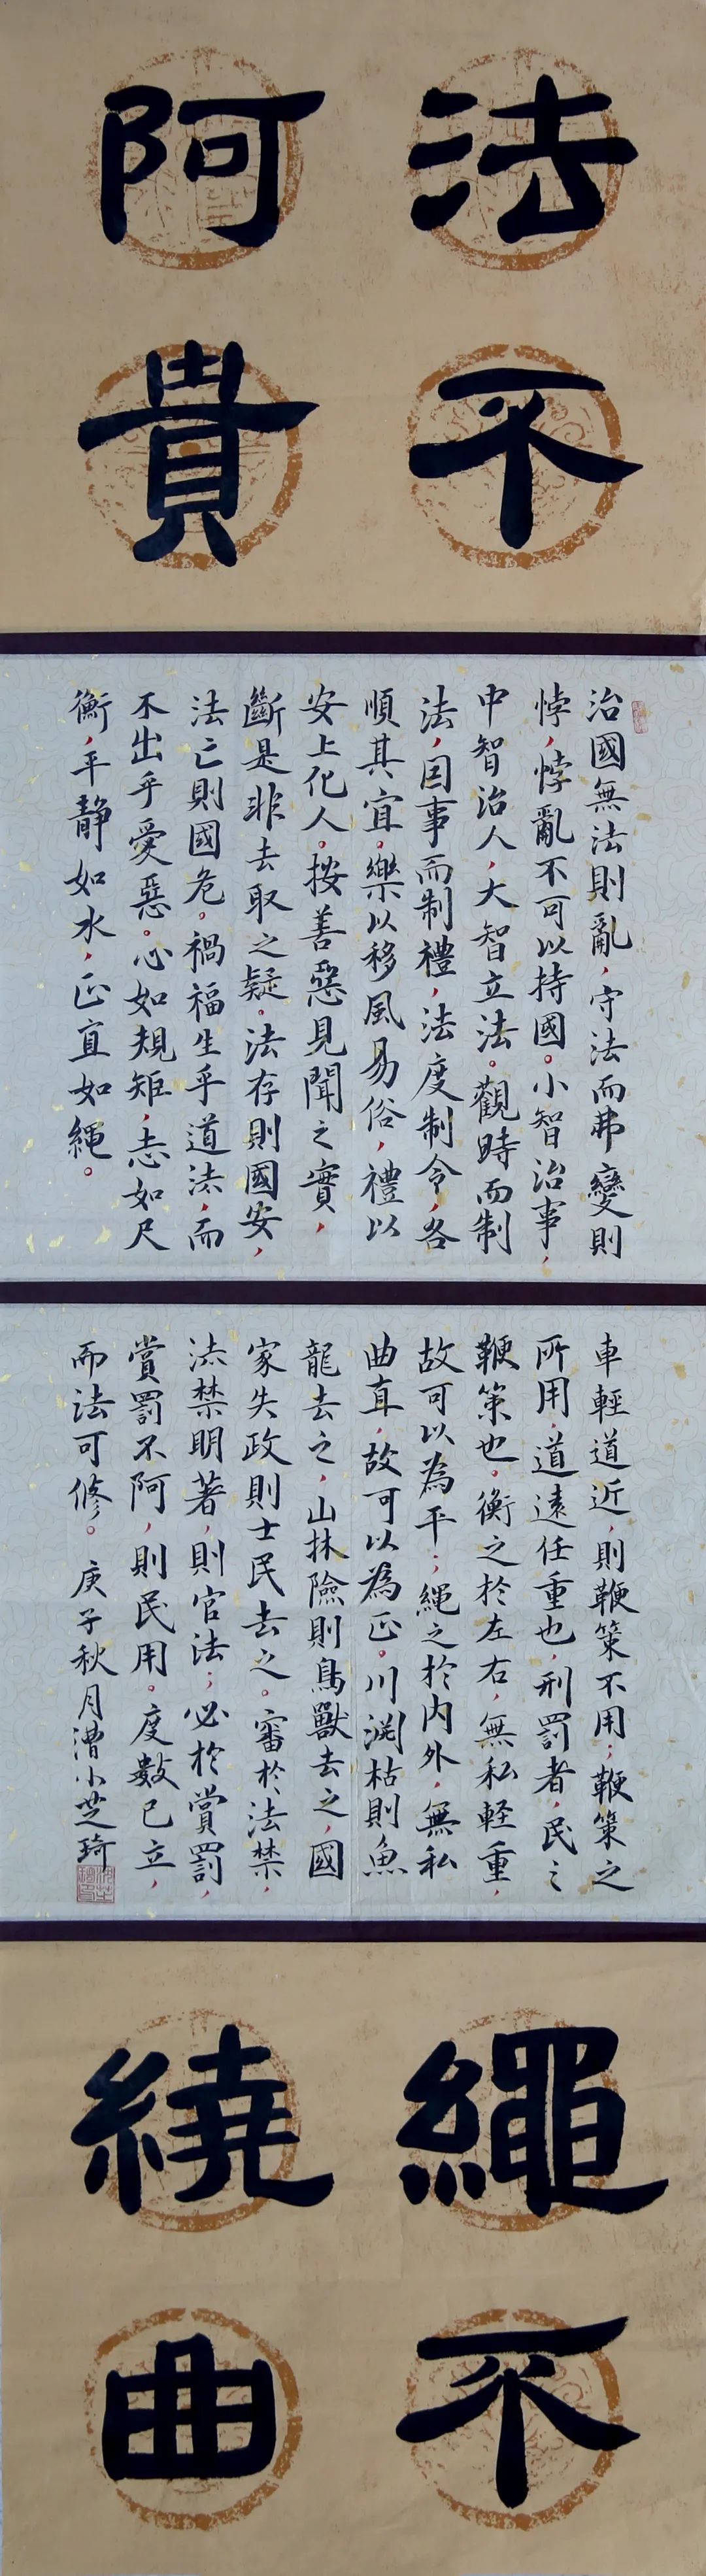 法不
阿貴
治國無法則亂，守法而弗變則
悖，悖亂不可以持國。小智治事，
中智治人，大智立法。觀時而制
法，因事而制禮，法度制令，各
順其宜。樂以移風易俗，禮以
安上化人。按善惡見聞之實，
斷是非去取之疑。法存則國安，
法亡則國危。禍福生乎道法，而
不出乎愛惡。心如規矩，志如尺
衡，平靜如水，正直如繩。
車輕道近，則鞭策不用；鞭策之
所用，道遠任重也，刑罰者，民之
鞭策也。衡之於左右，無私輕重，
故可以為平；繩之於內外，無私
曲直，故可以為正。川淵枯則魚
龍去之，山林險則鳥獸去之，國
家失政則士民去之。審於法禁，
法禁明著，則官法；必於賞罰，
賞罰不阿，則民用。度數已立，
而法可修。 庚子秋月漕小芝琦
繩不
繞曲